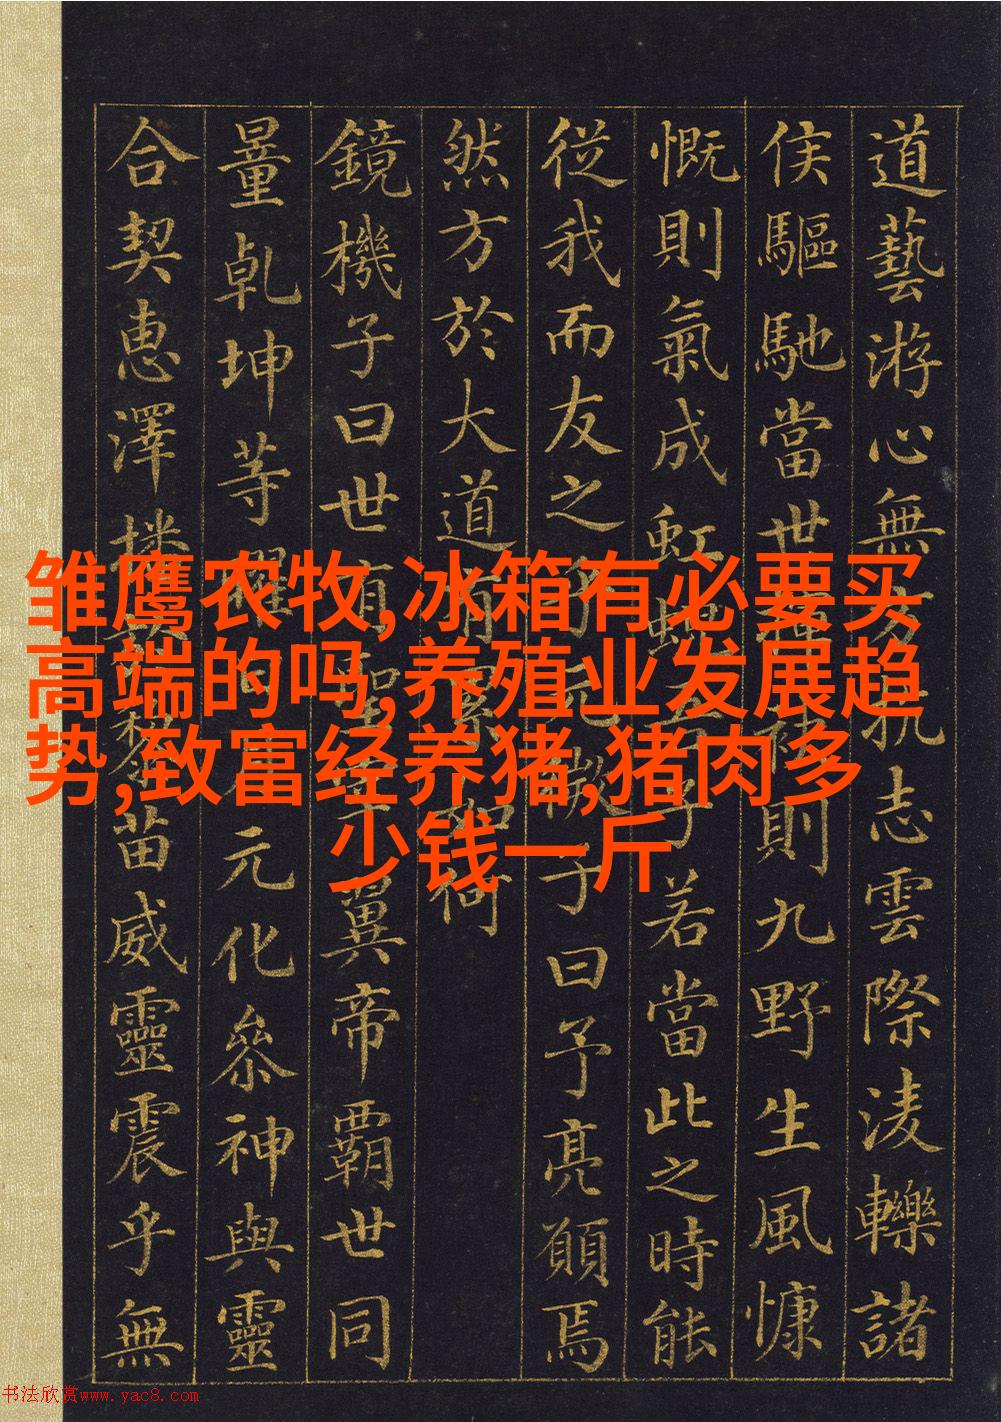 道藝游心無方抗志雲際淩轢諸
侯驅馳當世則九野生風慷
慨則氣成虹蜺吾子若當此之時能
從我而友之子曰予亮願焉
然方於大道有累如何
鏡機子曰世有聖翼帝霸世同
量乾坤等曜元化參神與靈
合契惠澤播黎苗威靈震乎無
雏鹰农牧,冰箱有必要买
高端的吗,养殖业发展趋
势,致富经养猪,猪肉多
少钱一斤
书法欣赏www.yac8.com